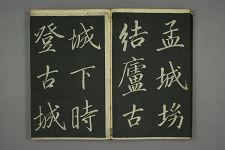 孟城坳
結廬古
城下時
登古城